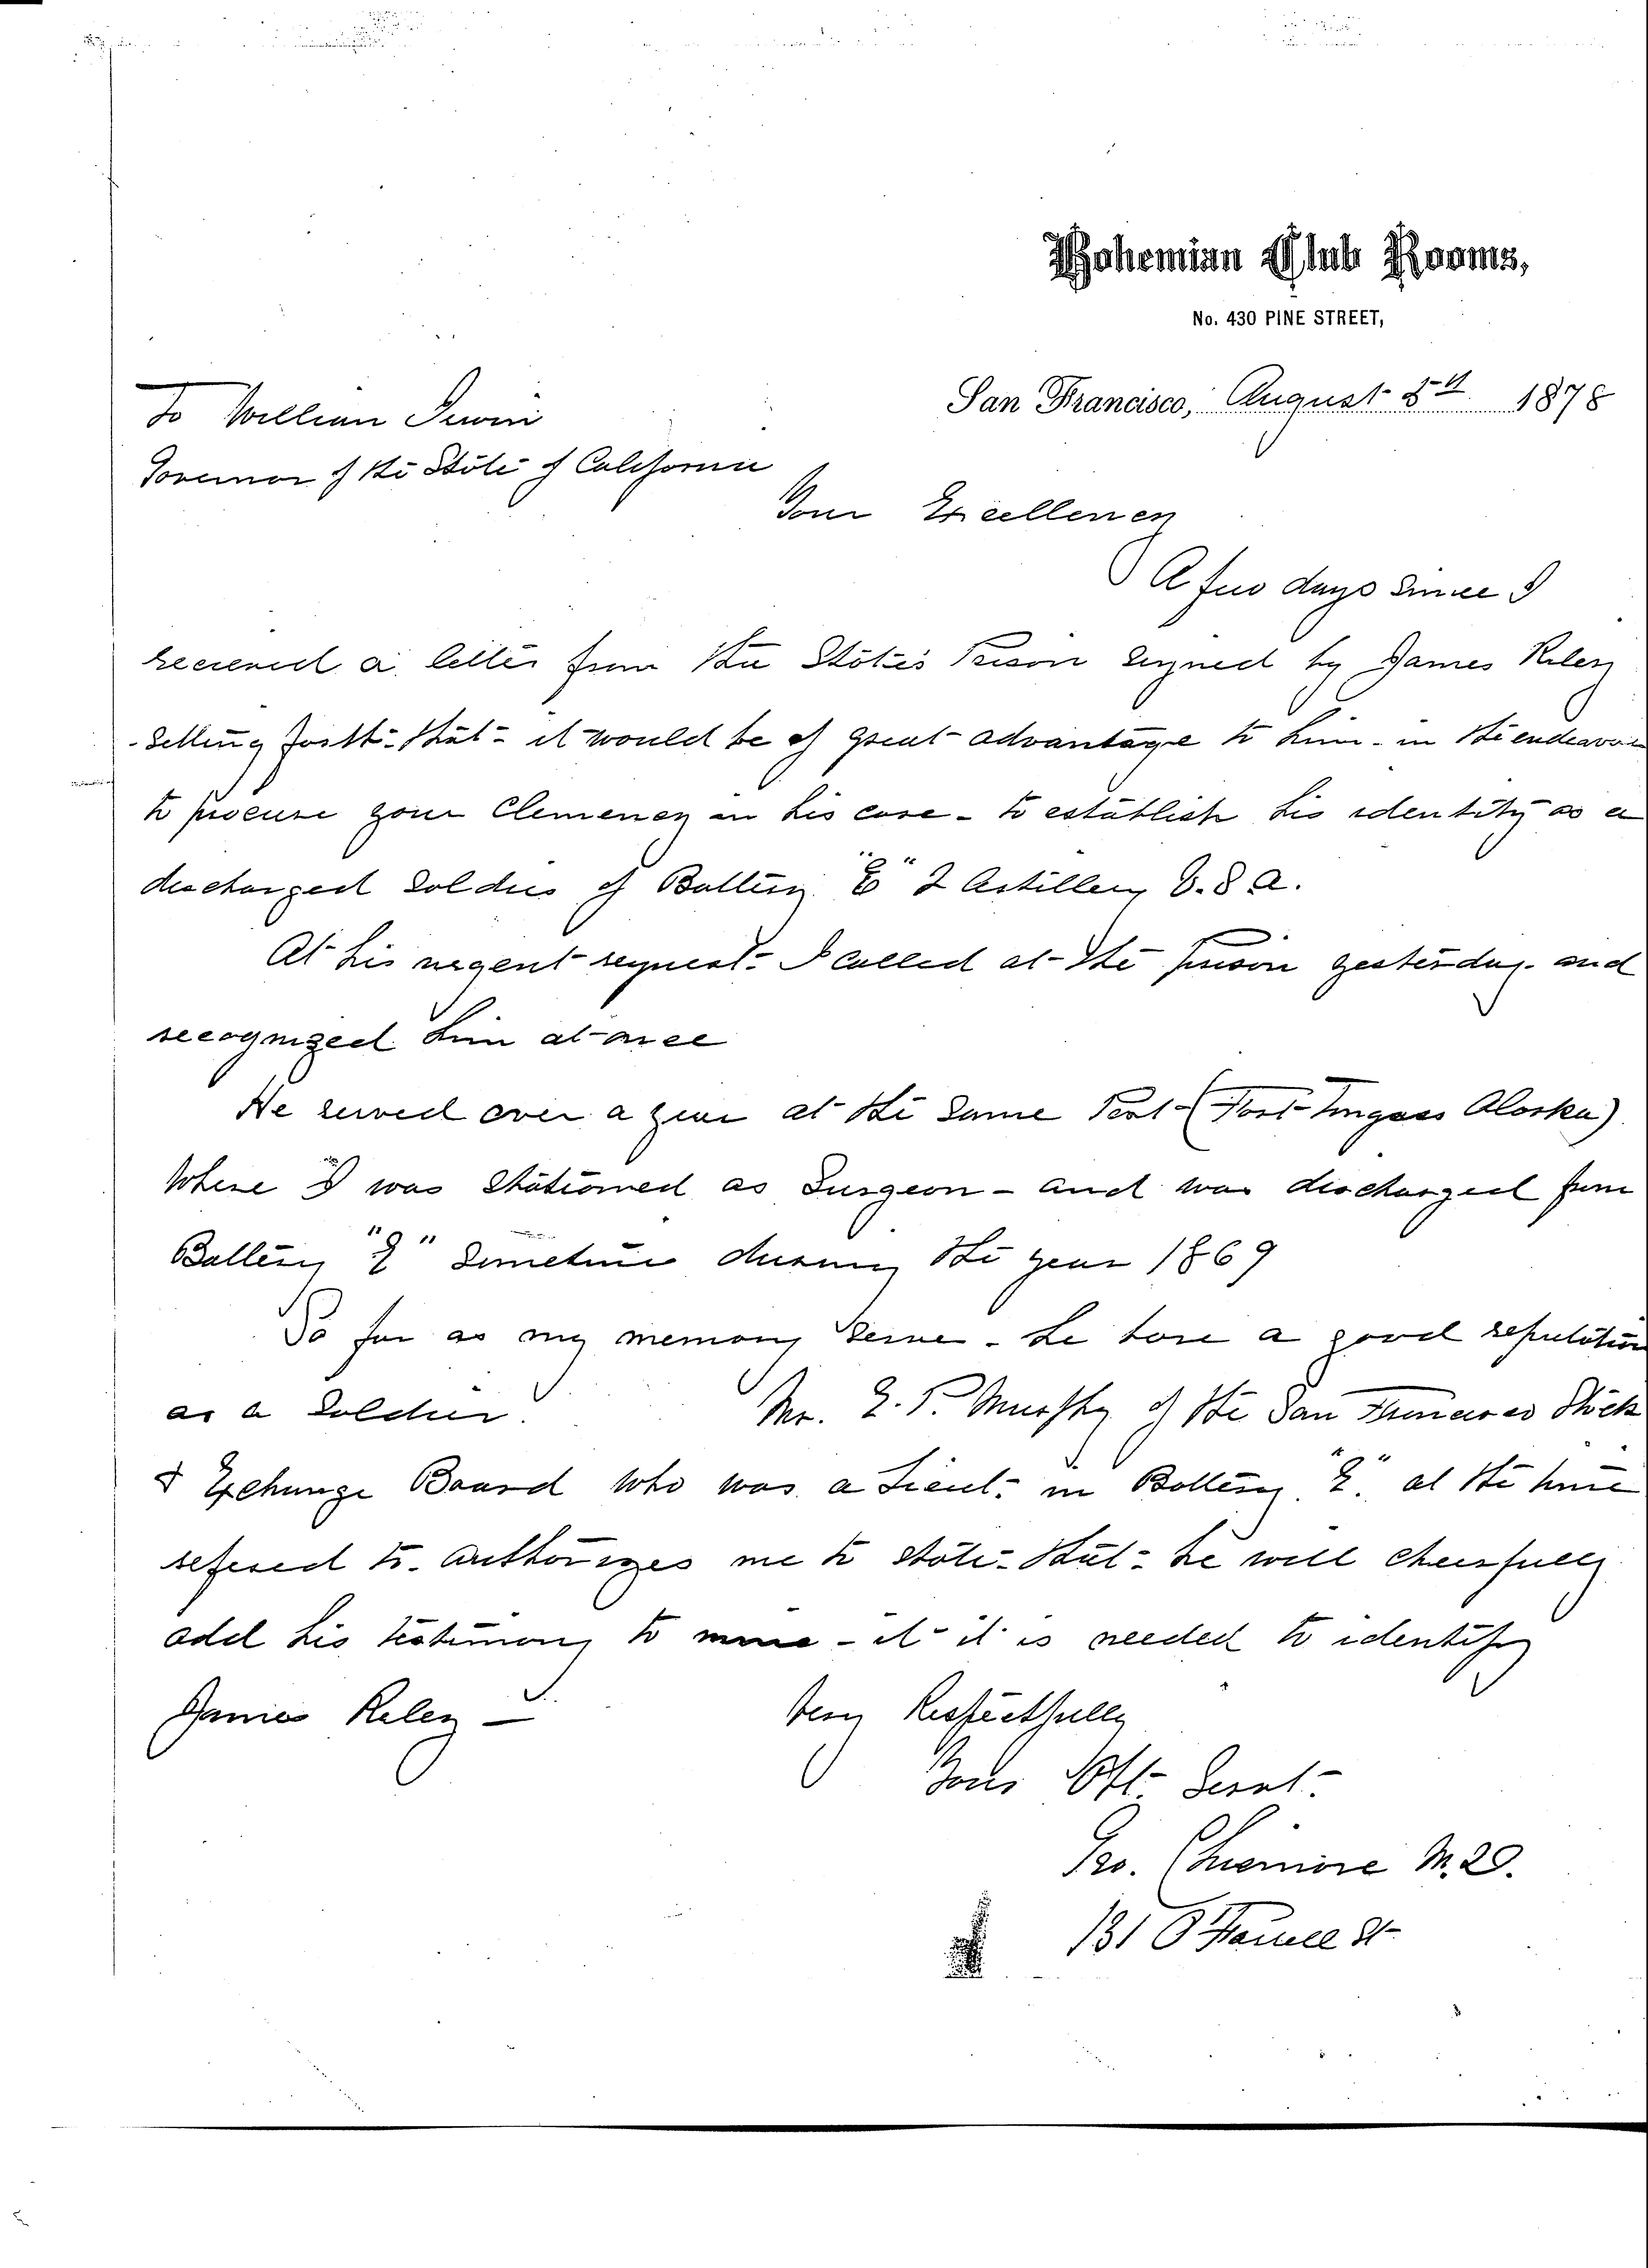 Bohemian Club Rooms,
No. 430 PINE STREET,
San Francisco, August 5th 1878
To William Irwin
Governor of the State of California
Your Excellency
A few days since I
received a letter from the States Prison signed by James Riley
setting forth - that - it would be of great advantage to him - in the endeavor
to procure your Clemency in his case - to establish his identity as a
discharged Soldier of Battery "E" 2 Artillery U.S.A.
At his urgent request - I called at the prison yesterday and
recognized him at once
He served over a year at the same Post - (Fort Tongass Alaska)
Where I was stationed as Surgeon - and was discharged from
Battery "E" Sometime during the year 1869
So far as my memory serves - he bore a good reputation
as a Soldier. Mr. E. P. Murphy of the San Francisco Stock
& Exchange Board who was a Lieut. in Battery "E" at the time
refered to - authorizes me to state - that - he will cheerfully
add his testimony to mine - if it is needed to identify
James Riley —
Very Respectfully
Your Obt. Servt -
Geo. Chismore M.D.
131 O'Farrell St